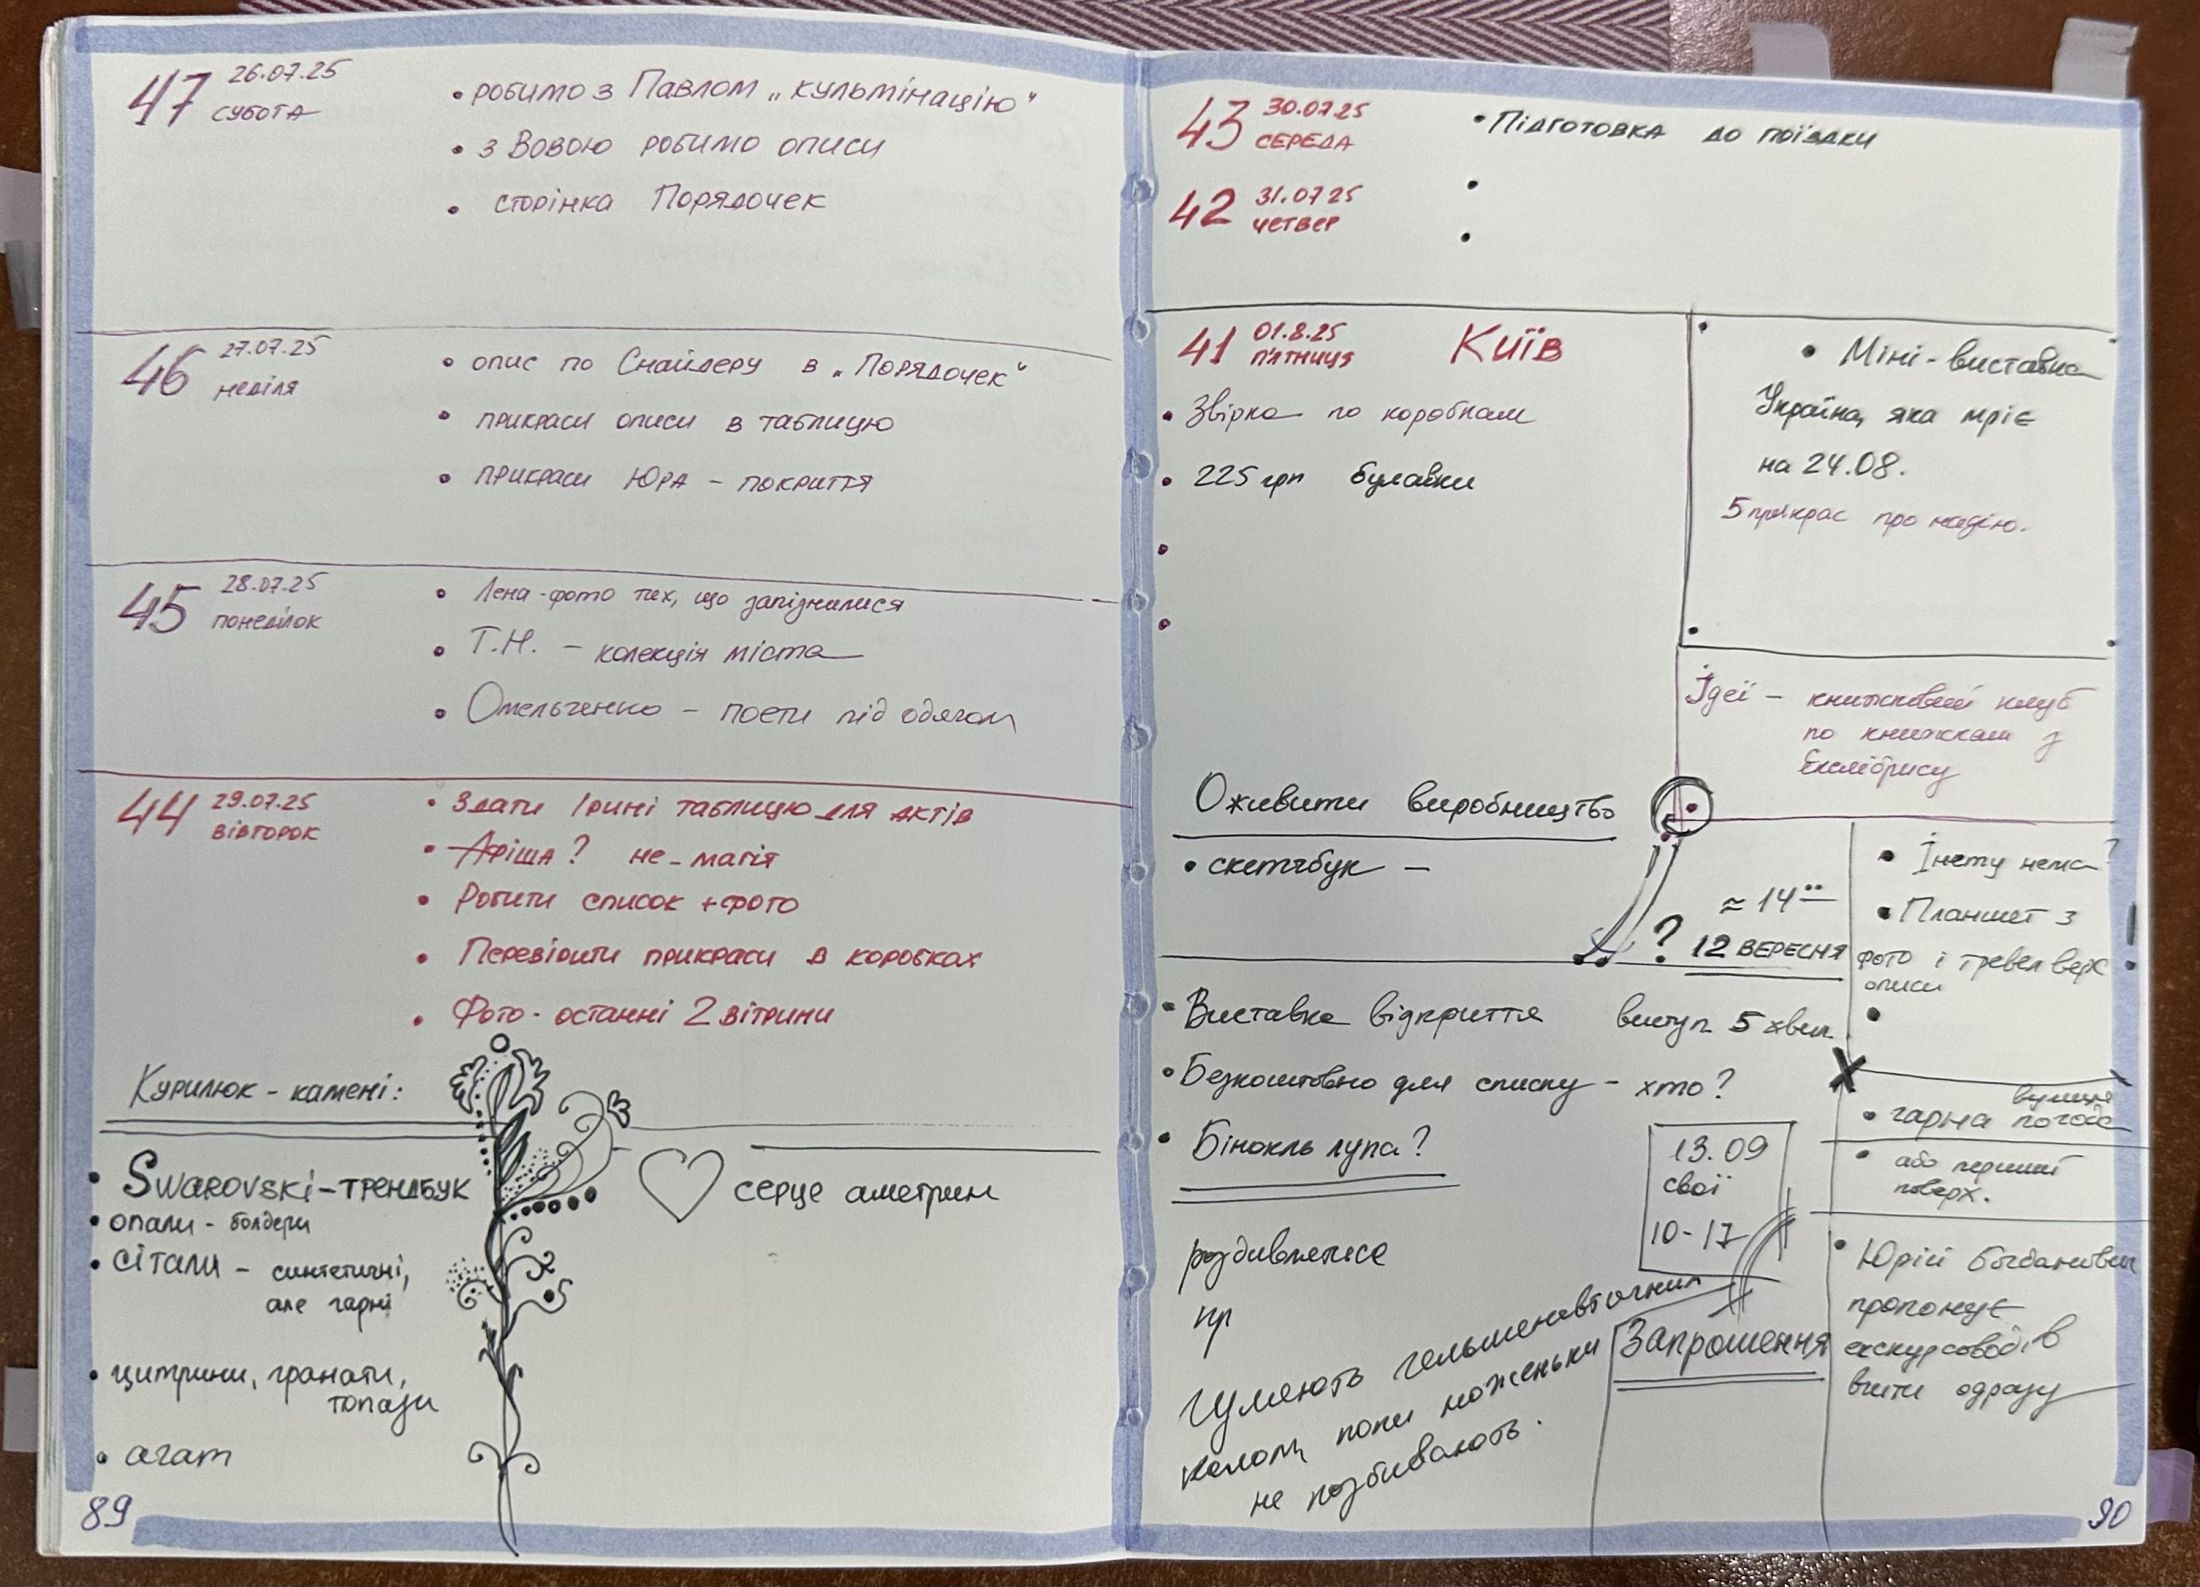 47 26.07.25
субота
• робимо з Павлом „кульмінацію"
• з Вовою робимо описи
• сторінка Порядочек
46 27.07.25
неділя
• опис по Снайдеру в „Порядочек"
• прикраси описи в таблицю
• прикраси Юра - покриття
45 28.07.25
понеділок
• Лена - фото тих, що запізнилися
• Т.Н. - колекція міста
• Омельченко - поети під одягом
44 29.07.25
вівторок
• Здати Ірині таблицю для актів
• Афіша? не-магія
• Робити список + фото
• Перевірити прикраси в коробках
• Фото - останні 2 вітрини
Курилюк - камені:
• Swarovski - трендбук
• опали - болдери
• сітали - синтетичні,
але гарні
• цитрини, гранати,
топази
• агат
серце аметрин
89
43 30.07.25
середа
• Підготовка до поїздки
42 31.07.25
четвер
41 01.8.25
п'ятниця
Київ
• Звірка по коробкам
• 225 грн булавки
• Міні-виставка
Україна, яка мріє
на 24.08.
5 прикрас про надію.
Ідеї - книжковий клуб
по книжкам з
Екслібрису
Оживити виробництво
• скетчбук -
≈ 14⁰⁰
? 12 вересня
• Інету нема?
• Планшет з
фото і тревел верх
описи
• Виставка відкриття виступ 5 хвил
• Безкоштовно для списку - хто?
• Бінокль лупа?
13.09
свої
10-17
вулиця
• гарна погода
• або перший
поверх.
роздивлятися
пр
Запрошення
• Юрій Богданович
пропонує
екскурсоводів
вчити одразу
не розбивають.
90